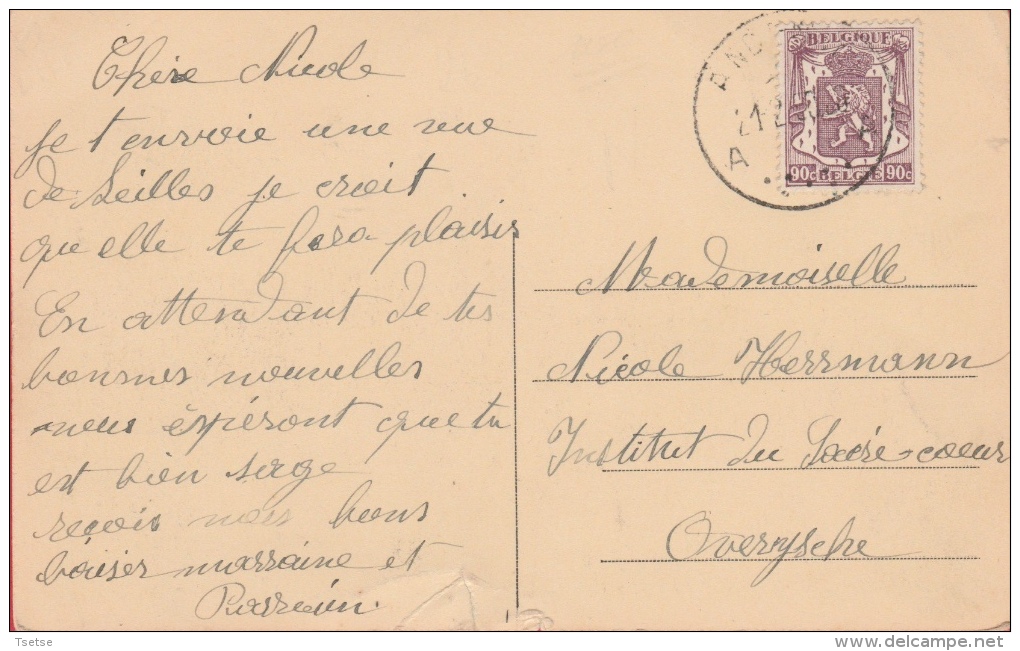 Chère Nicole
je t'envoie une vue
de Seilles je croit
quelle te fera plaisir
En attendant de tes
bonnes nouvelles
nous éspéront que tu
est bien sage
reçois nos bons
baiser marraine et
Parrain.
BELGIQUE
90c BELGIE 90c
A
Mademoiselle
Nicole Herrmann
Institut du Sacré-coeur
Overysche
Tsetse
www.delcampe.net